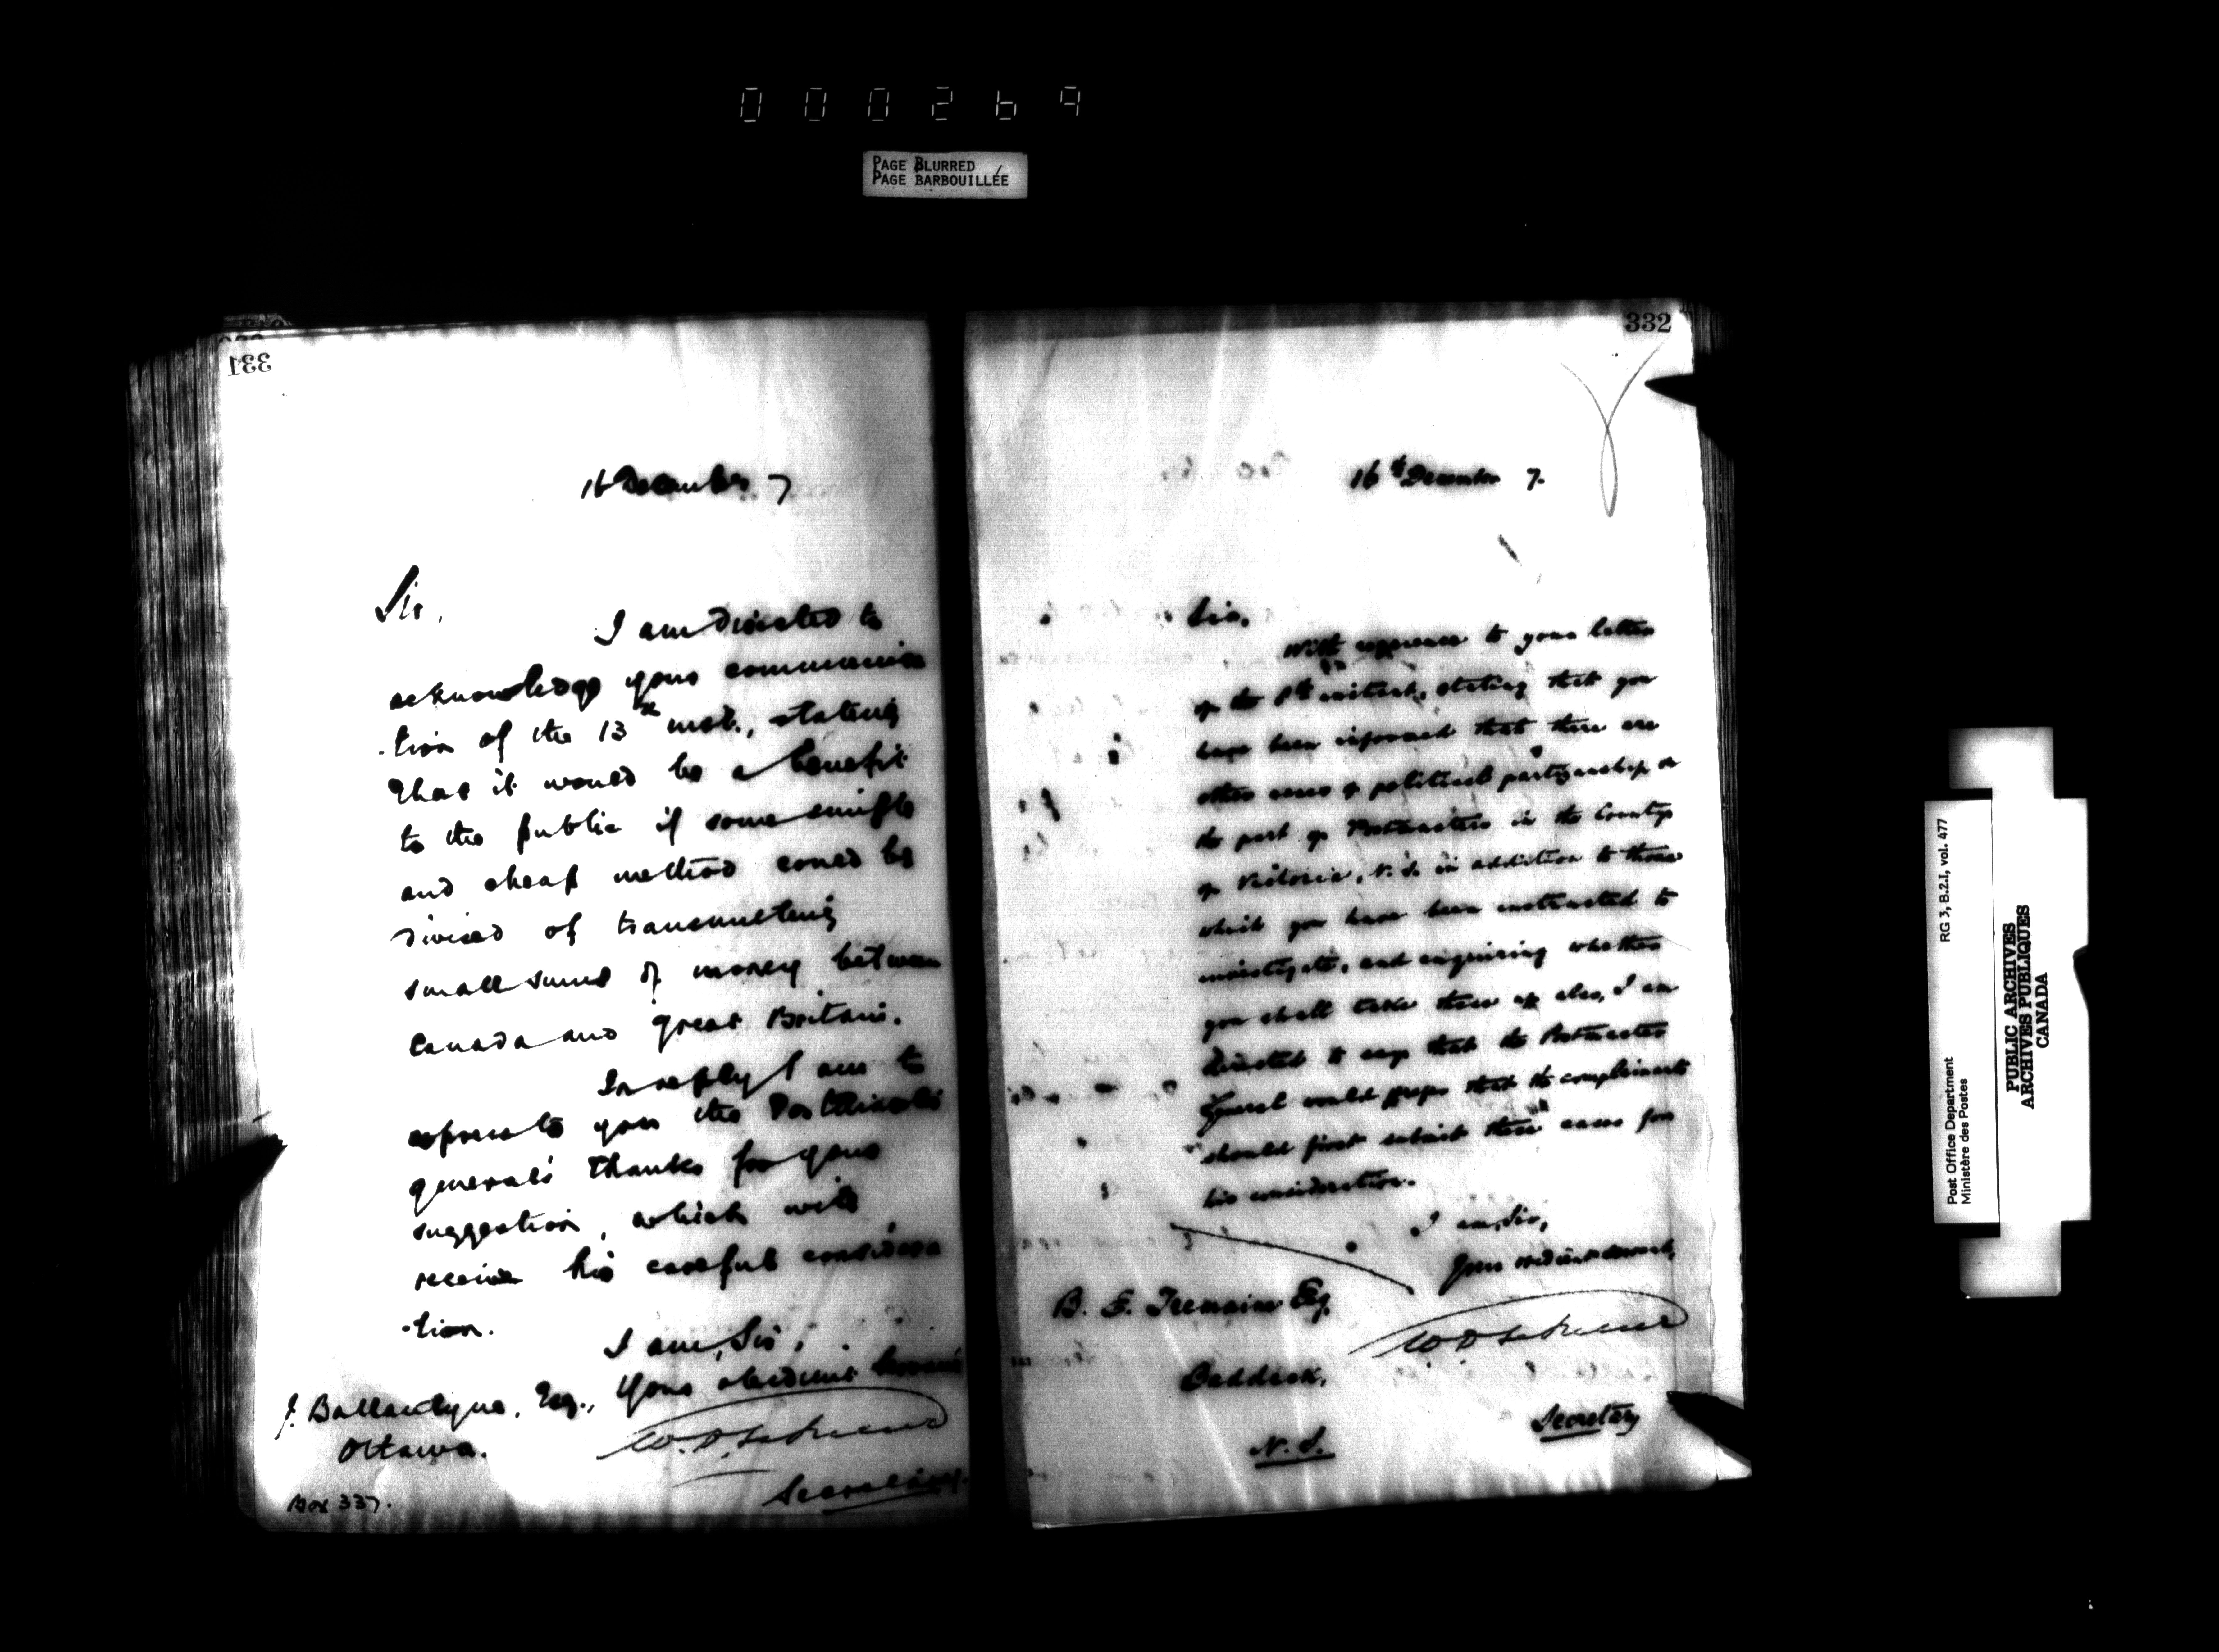 000269
PAGE BLURRED
PAGE BARBOUILLÉE
331
16 December 7
Sir,
I am directed to
acknowledge your communica
-tion of the 13th inst., stating
that it would be a benefit
to the public if some simple
and cheap method could be
divised of transmitting
small sums of money between
Canada and Great Britain.
In reply I am to
express to you the Postmaster
General's thanks for your
suggestion, which will
receive his careful considera
-tion.
I am, Sir,
Your obedient Servant
J. Ballantyne, Esq.,
Ottawa.
Secretary.
Box 337.
332
16th December 7.
Sir,
With reference to your letter
of the 8th instant, stating that you
have been informed that there are
other cases of political partizanship on
the part of Postmasters in the County
of Victoria, N.S. in addition to those
which you have been instructed to
investigate, and enquiring whether
you shall take these up also, I am
directed to say that the Postmaster
General would prefer that the complainant
should first submit these cases for
his consideration.
I am, Sir,
Your obedient servant,
B. E. Tremaine Esq.
Baddeck,
N.S.
Secretary
Post Office Department RG 3, B.2.I, vol. 477
Ministère des Postes
PUBLIC ARCHIVES
ARCHIVES PUBLIQUES
CANADA